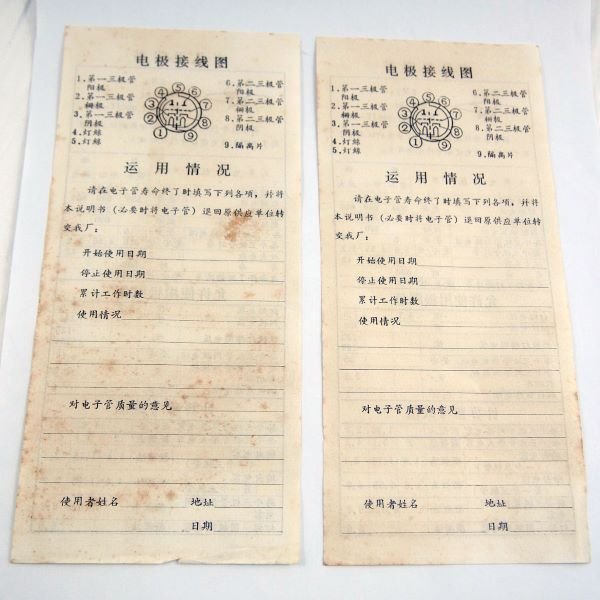 电极接线图
1.第一三极管
阳极
2.第一三极管
栅极
3.第一三极管
阴极
4.灯丝
5.灯丝
1
2
3
4
5
6
7
8
9
6.第二三极管
阳极
7.第二三极管
栅极
8.第二三极管
阴极
9.隔离片
运用情况
请在电子管寿命终了时填写下列各项，并将
本说明书（必要时将电子管）退回原供应单位转
交我厂：
开始使用日期
停止使用日期
累计工作时数
使用情况
对电子管质量的意见
使用者姓名 地址
日期
电极接线图
1.第一三极管
阳极
2.第一三极管
栅极
3.第一三极管
阴极
4.灯丝
5.灯丝
1
2
3
4
5
6
7
8
9
6.第二三极管
阳极
7.第二三极管
栅极
8.第二三极管
阴极
9.隔离片
运用情况
请在电子管寿命终了时填写下列各项，并将
本说明书（必要时将电子管）退回原供应单位转
交我厂：
开始使用日期
停止使用日期
累计工作时数
使用情况
对电子管质量的意见
使用者姓名 地址
日期